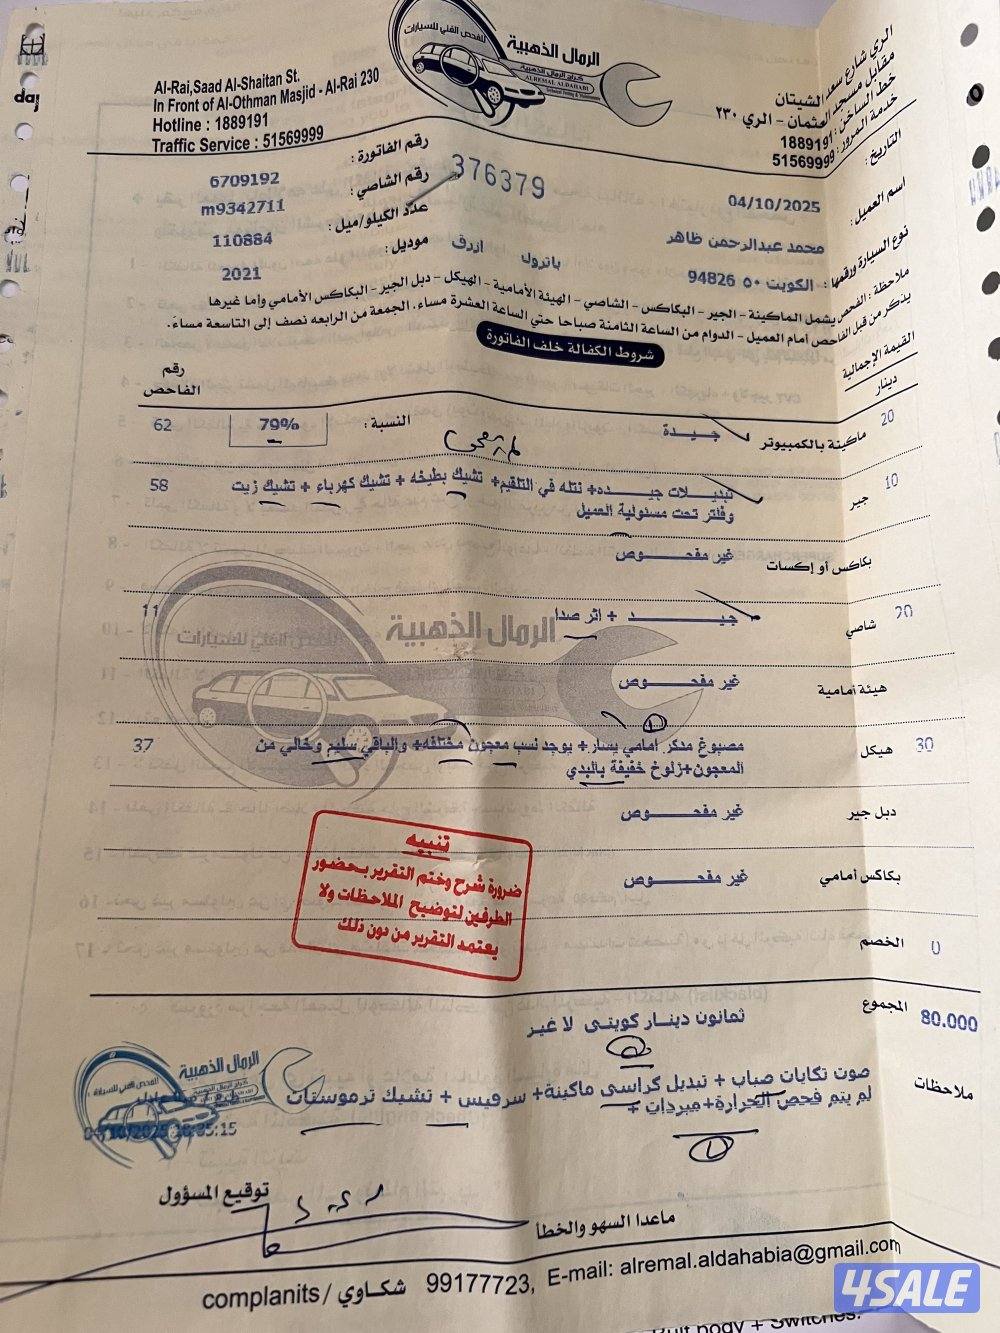 الرمال الذهبية
للفحص الفني للسيارات
كراج الرمال الذهبية
ALREMAL ALDAHABI
Al-Rai,Saad Al-Shaitan St.
In Front of Al-Othman Masjid - Al-Rai 230
Hotline : 1889191
Traffic Service : 51569999
الري شارع سعد الشيتان
مقابل مسجد العثمان - الري ٢٣٠
خط الساخن : 1889191
خدمة المرور : 51569999
التاريخ : 04/10/2025
رقم الفاتورة : 6709192
376379
اسم العميل : محمد عبدالرحمن ظاهر
رقم الشاصي : m9342711
نوع السيارة ورقمها : الكويت ٥٠ 94826 باترول ازرق
عدد الكيلو/ميل : 110884
موديل : 2021
ملاحظة : الفحص يشمل الماكينة - الجير - البكاكس - الشاصي - الهيئة الأمامية - الهيكل - دبل الجير - البكاكس الأمامي وأما غيرها
يذكر من قبل الفاحص أمام العميل - الدوام من الساعة الثامنة صباحا حتى الساعة العشرة مساء. الجمعة من الرابعه نصف إلى التاسعة مساء.
شروط الكفالة خلف الفاتورة
القيمة الإجمالية
دينار
رقم الفاحص
20 ماكينة بالكمبيوتر جيدة النسبة : 79% 62
10 جير تبديلات جيده+ نتله في التلقيم+ تشيك بطيخه + تشيك كهرباء + تشيك زيت 58
وفلتر تحت مسئولية العميل
بكاكس أو إكسات غير مفحوص
20 شاصي جيد + اثر صدا 11
هيئة أمامية غير مفحوص
30 هيكل مصبوغ مدكر امامي يسار+ يوجد نسب معجون مختلفه+ والباقي سليم وخالي من 37
المعجون+زلوخ خفيفة بالبدي
دبل جير غير مفحوص
بكاكس أمامي غير مفحوص
0 الخصم
تنبيه
ضرورة شرح وختم التقرير بحضور
الطرفين لتوضيح الملاحظات ولا
يعتمد التقرير من دون ذلك
80.000 المجموع ثمانون دينار كويتي لا غير
ملاحظات صوت تكايات صباب + تبديل كراسي ماكينة+ سرفيس + تشيك ترموستات
لم يتم فحص الحرارة+ مبردات +
الرمال الذهبية
16:35:15
توقيع المسؤول
ماعدا السهو والخطأ
complanits / شكاوي 99177723, E-mail: alremal.aldahabia@gmail.com
4SALE